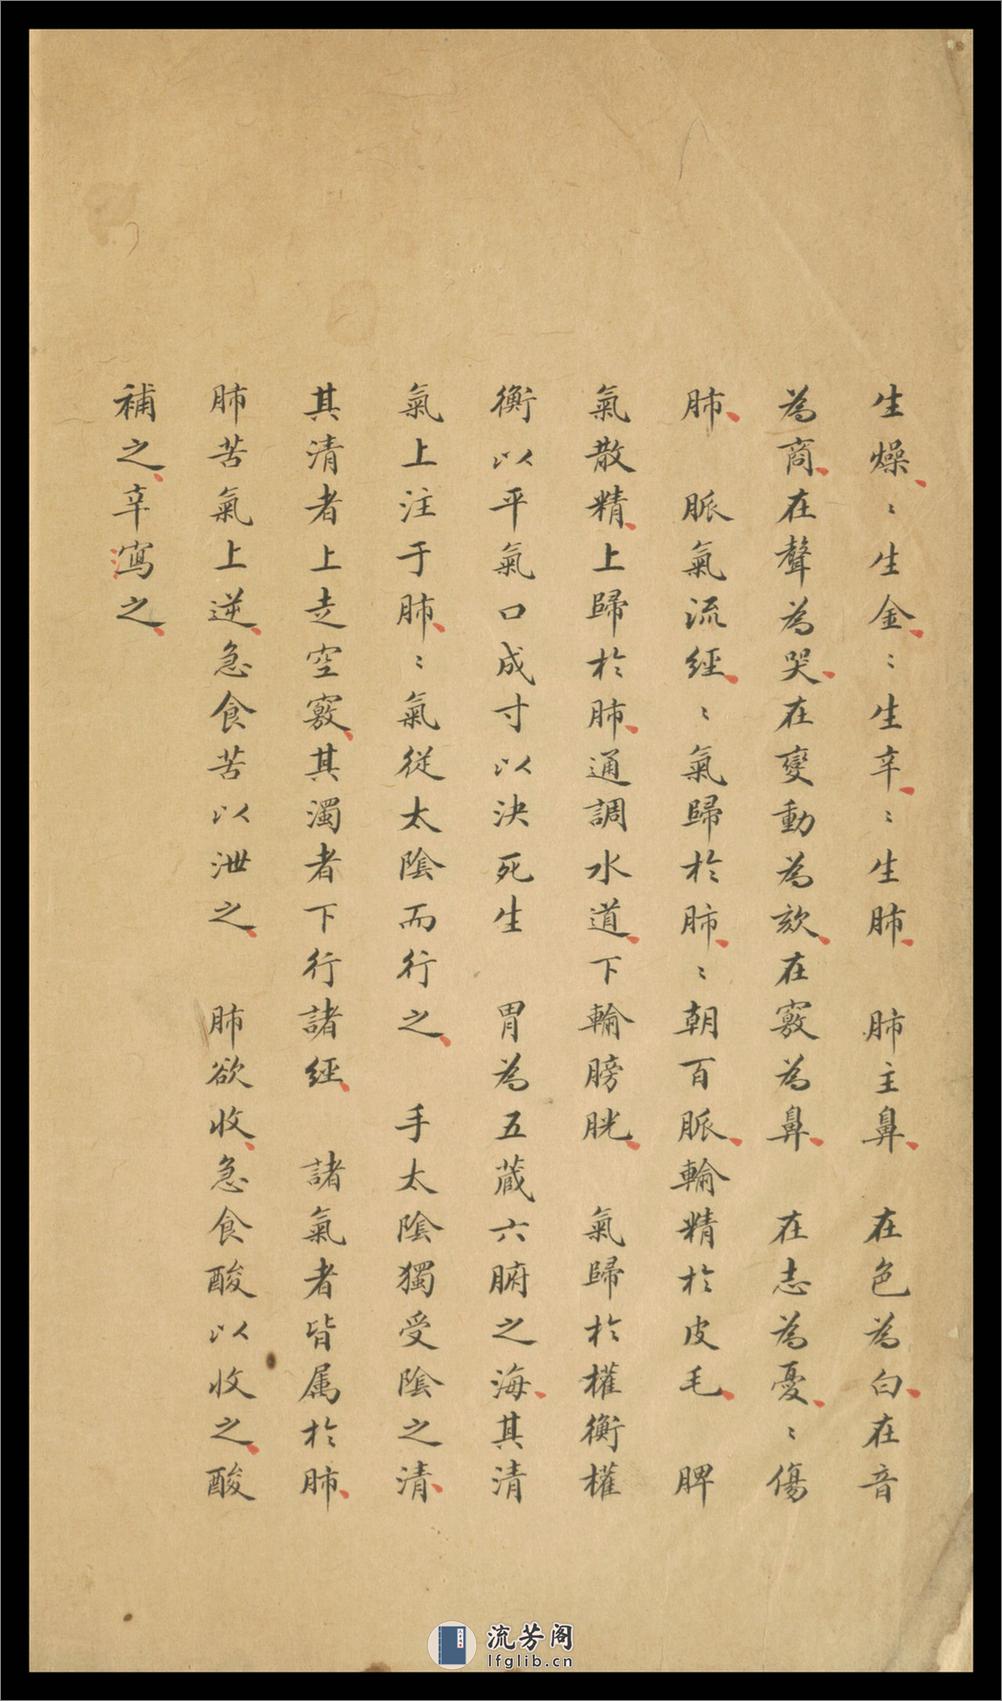 生燥〻生金〻生辛〻生肺　肺主鼻　在色為白在音
為商在聲為哭在變動為欬在竅為鼻　在志為憂〻傷
肺　脈氣流經〻氣歸於肺〻朝百脈輸精於皮毛　脾
氣散精上歸於肺通調水道下輸膀胱　氣歸於權衡權
衡以平氣口成寸以決死生　胃為五蔵六腑之海其清
氣上注于肺〻氣從太陰而行之　手太陰獨受陰之清
其清者上走空竅其濁者下行諸經　諸氣者皆属於肺
肺苦氣上逆急食苦以泄之　肺欲收急食酸以收之酸
補之辛寫之
流芳阁
lfglib.cn